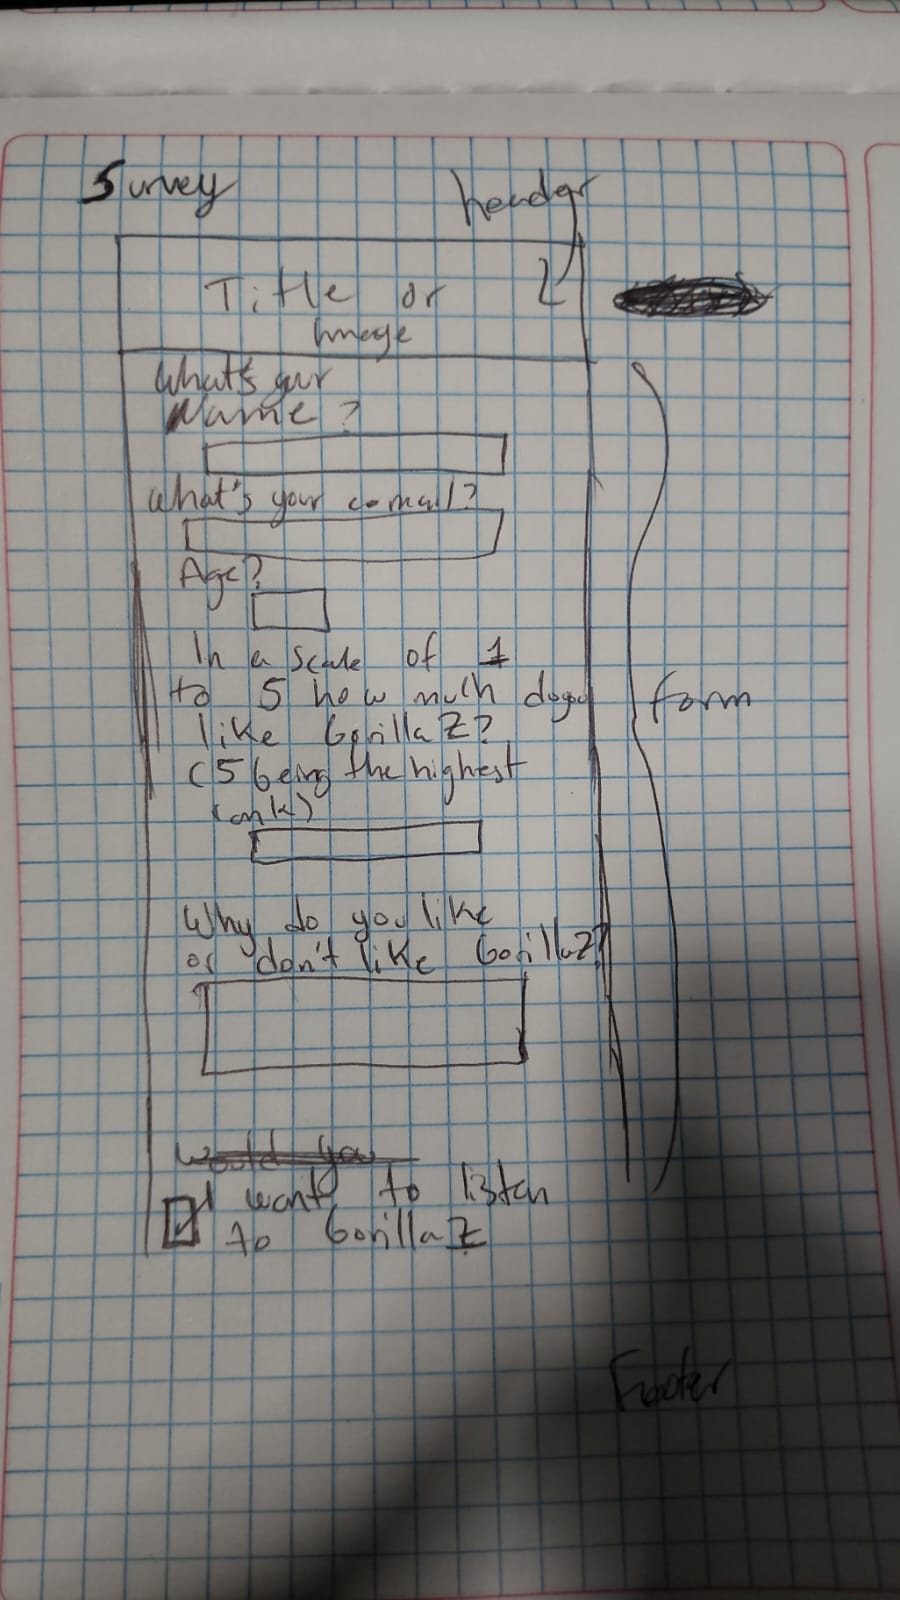 Survey
header
Title or
Image
What's your
Name?
What's your e-mail?
Age?
In a scale of 1
to 5 how much do you
like GorillaZ?
(5 being the highest
rank)
form
Why do you like
or don't like GorillaZ?
would you
I want to listen
to GorillaZ
Footer